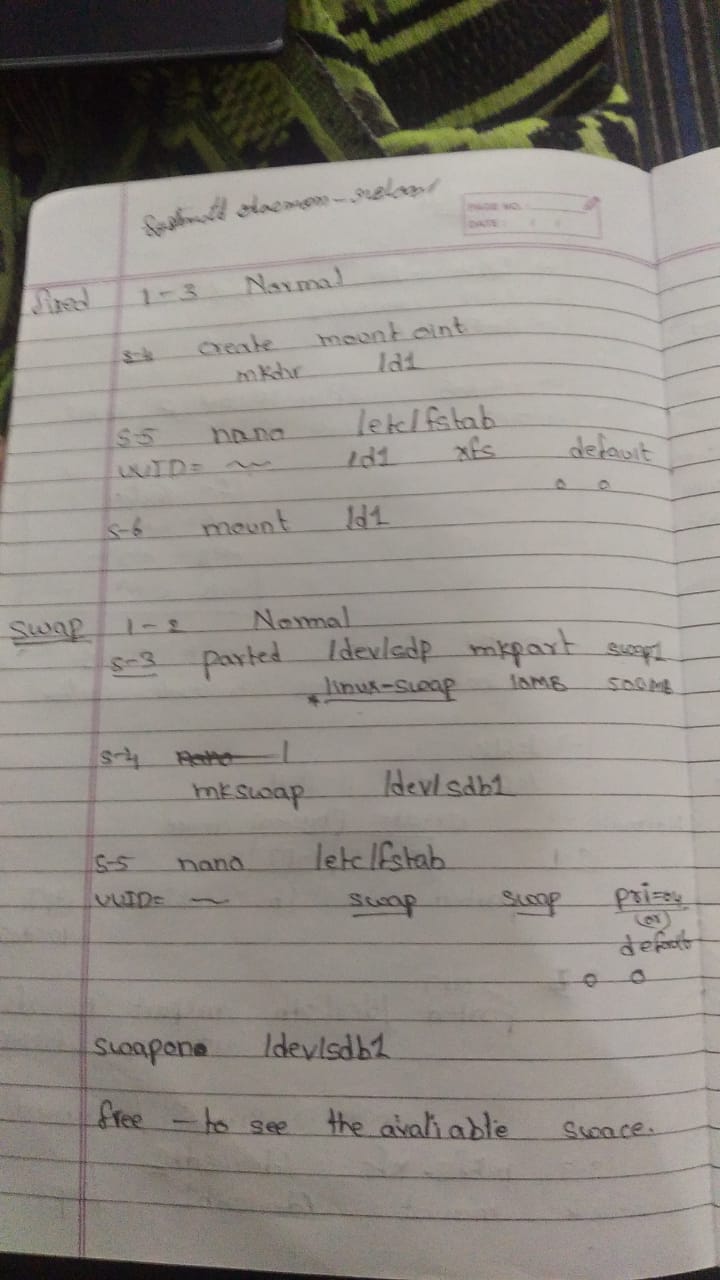 daemon-reload
PAGE NO.:
DATE:
fixed 1-3 Normal
s-4 create mount oint
mkdir /d1
s-5 nano /etc/fstab
UUID= ~ /d1 xfs default
0 0
s-6 mount /d1
swap 1-2 Normal
s-3 parted /dev/sdp mkpart swap1
*linux-swap 10MB 500MB
s-4
mkswap /dev/sdb1
s-5 nano /etc/fstab
UUID= ~ swap swap
(or)
default
0 0
swapon /dev/sdb1
free - to see the avaliable swace.